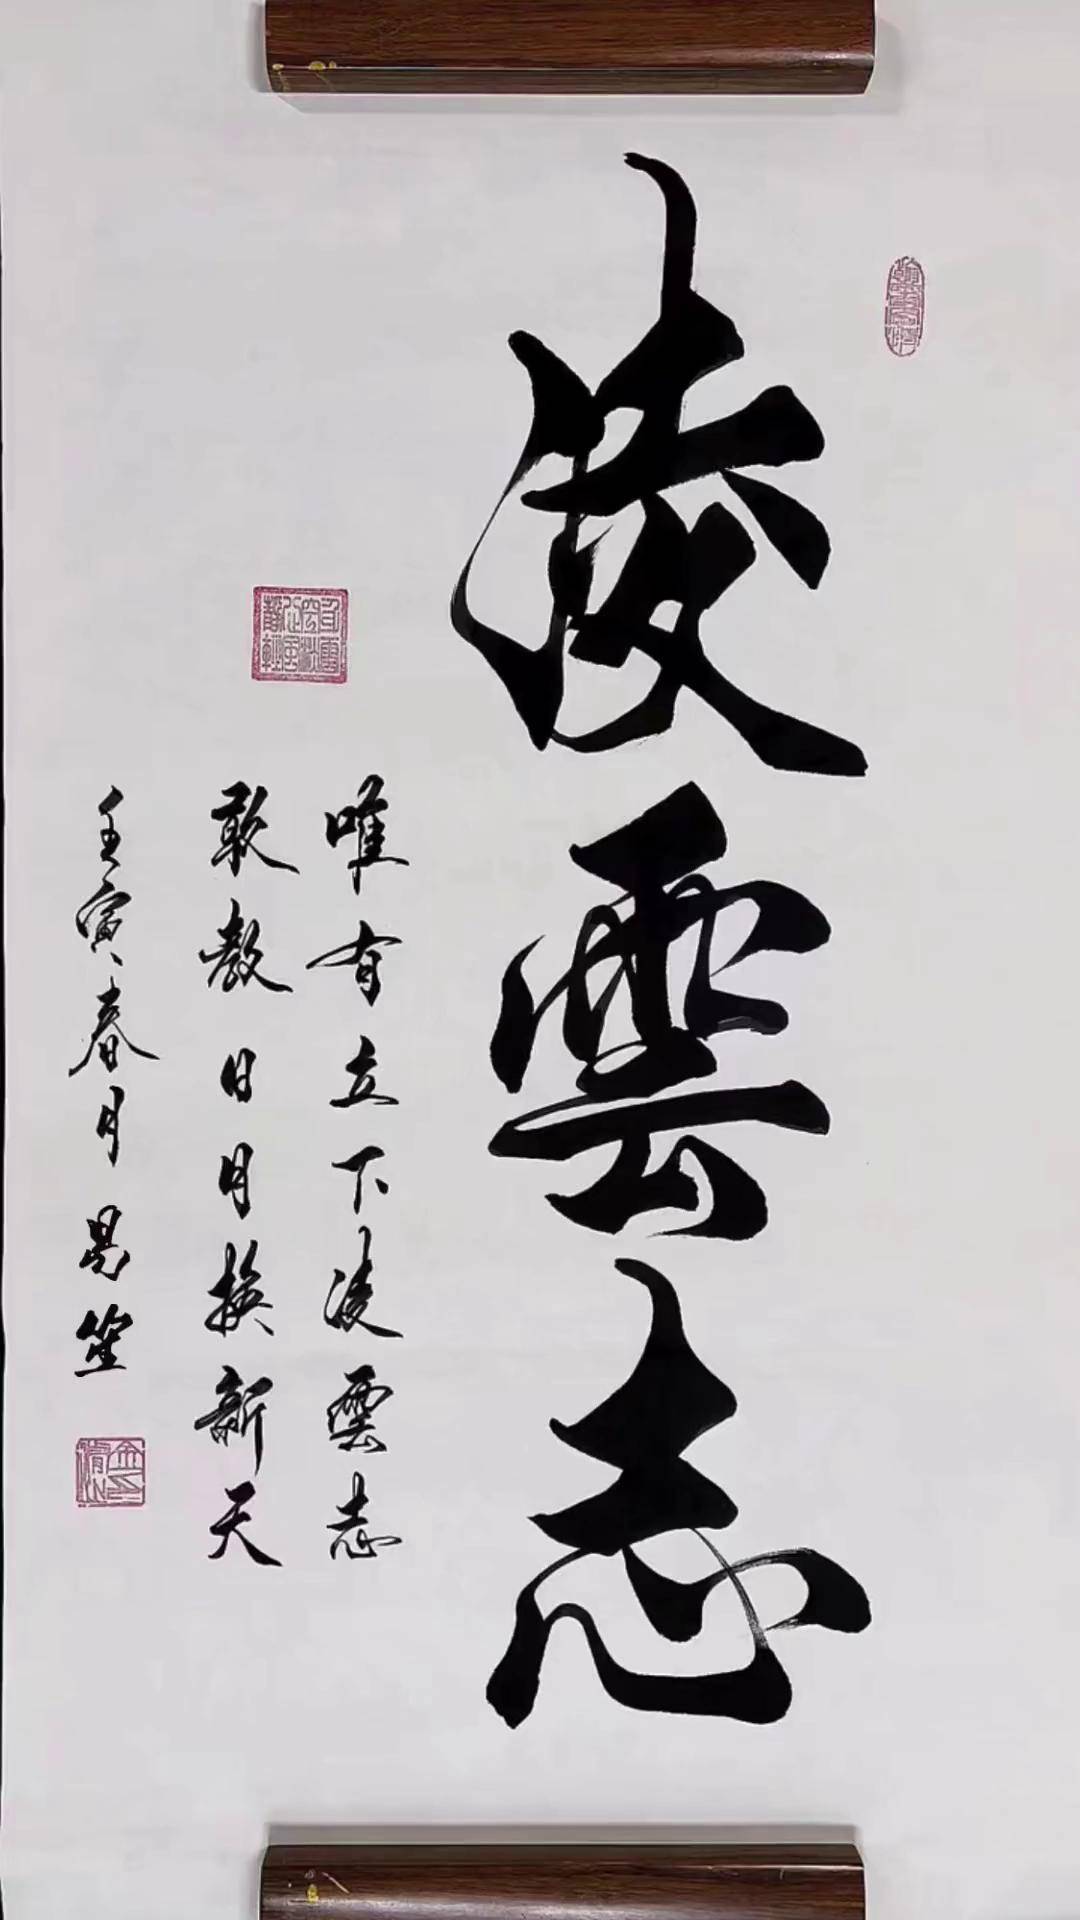 凌雲志
唯有立下凌雲志
敢教日月換新天
壬寅春月易笙